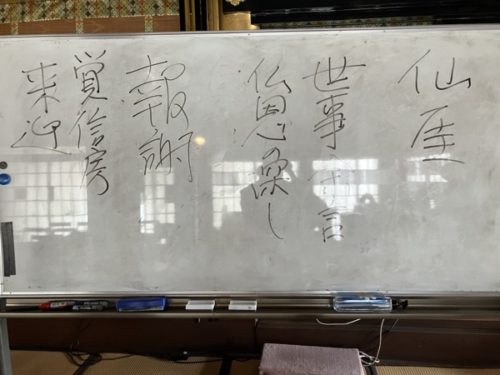 仙厓
世事余言
仏恩の深し
報謝
覚信房
来迎